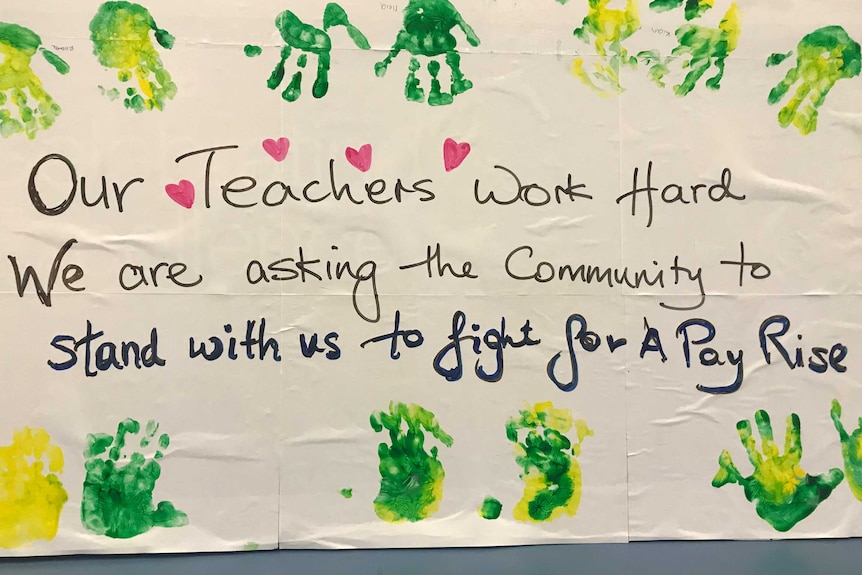 Our Teachers Work Hard
We are asking the Community to
stand with us to fight for A Pay Rise